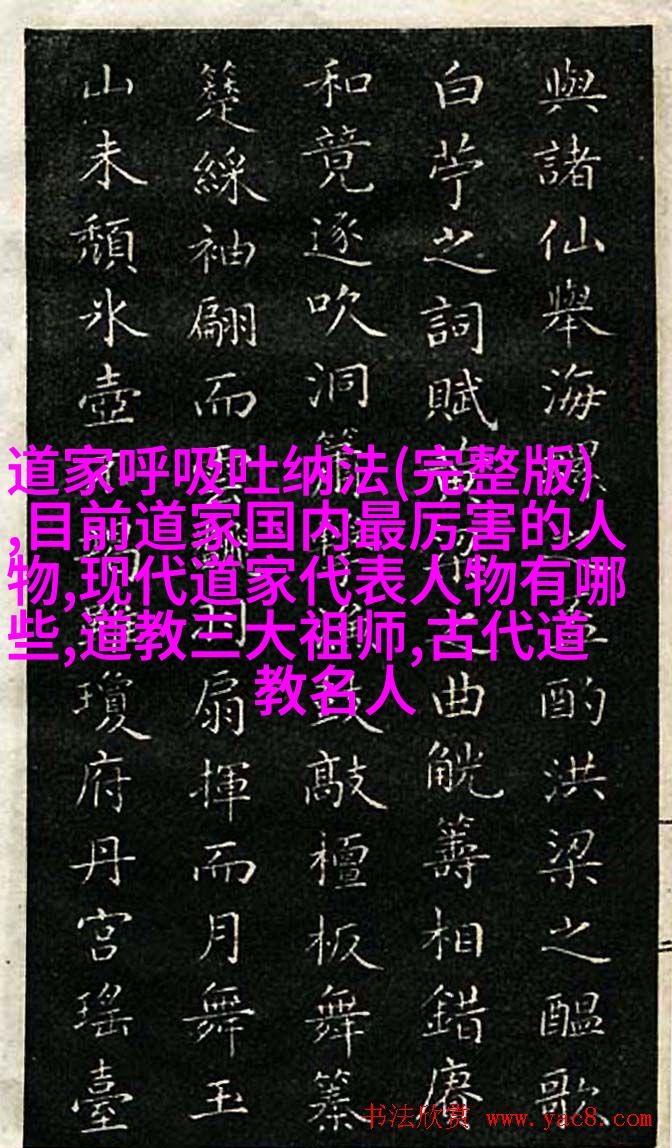 與諸仙舉海螺酌洪梁之醞歌
白苧之詞賦之曲觥籌相錯賡
和竟逐吹洞簫鼓敲檀板舞
綵袖翩而雲羽扇揮而月舞玉
山未頹冰壺瓊府丹宮瑤臺
道家呼吸吐纳法(完整版)
,目前道家国内最厉害的人
物,现代道家代表人物有哪
些,道教三大祖师,古代道
教名人
书法欣赏 www.yac8.com